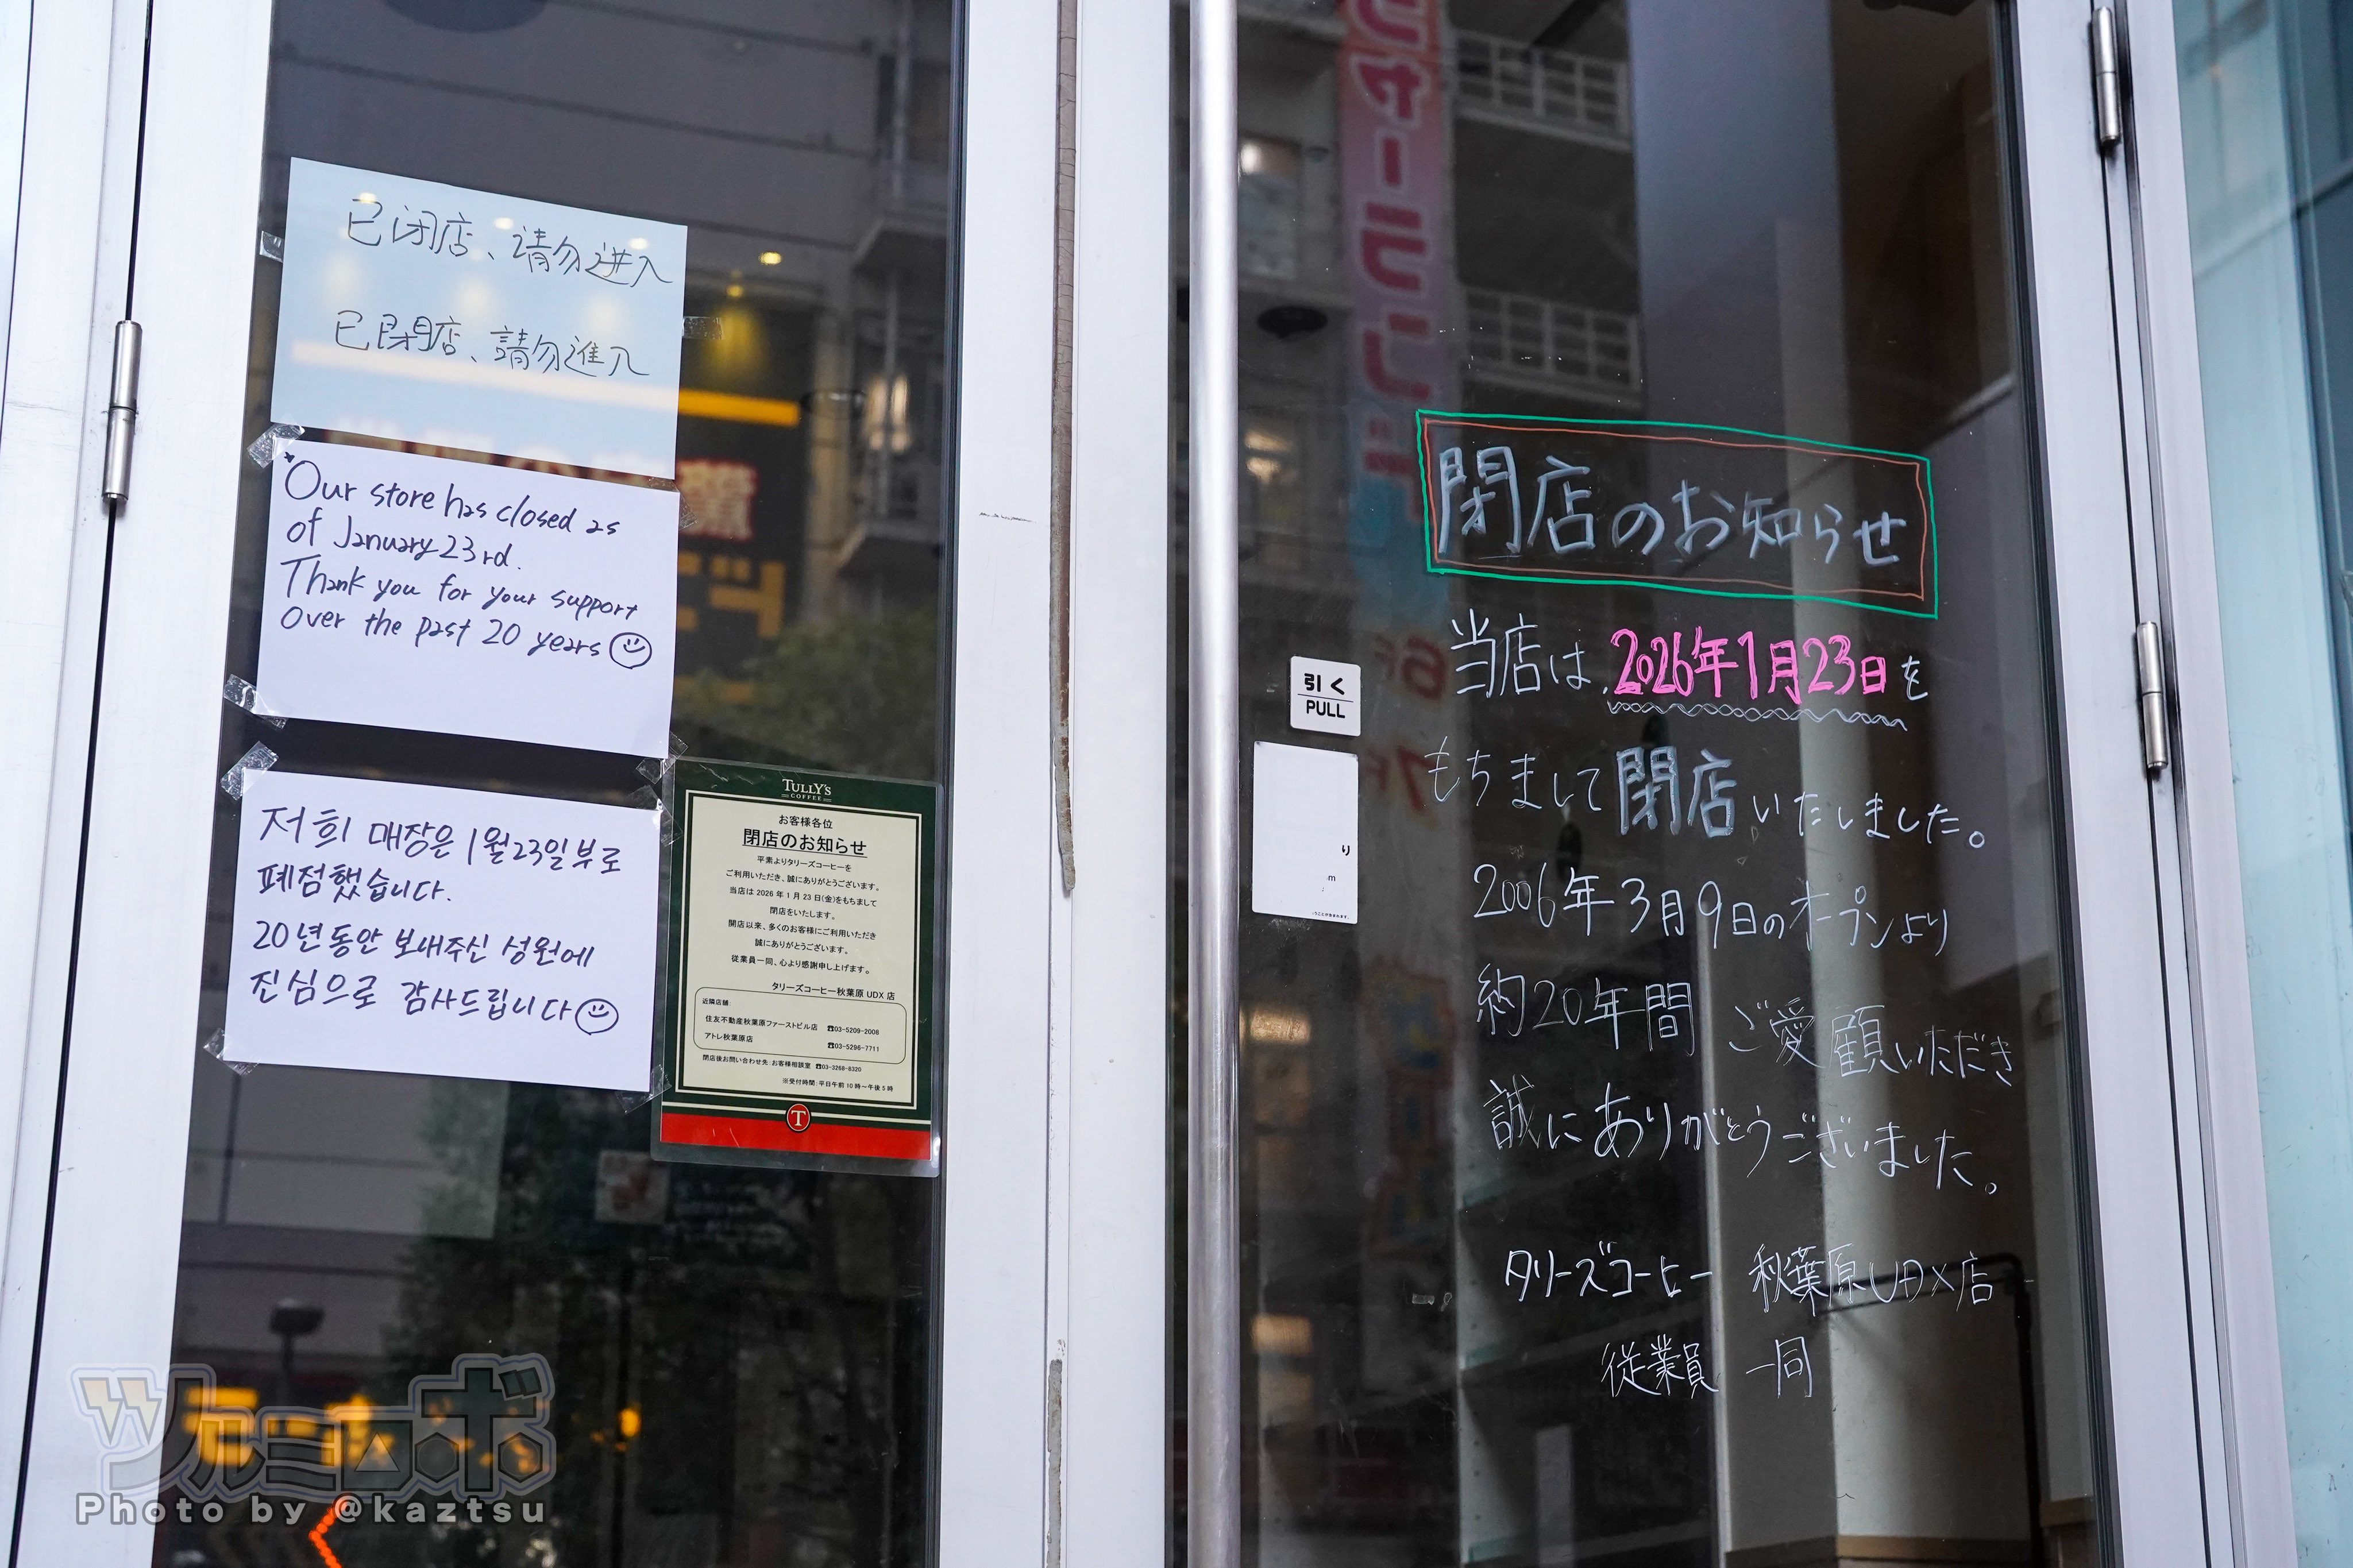 已闭店、请勿进入
已閉店、請勿進入
Our store has closed as
of January 23rd.
Thank you for your support
over the past 20 years
저희 매장은 1월23일부로
폐점했습니다.
20년동안 보내주신 성원에
진심으로 감사드립니다
TULLY'S
COFFEE
お客様各位
閉店のお知らせ
平素よりタリーズコーヒーを
ご利用いただき、誠にありがとうございます。
当店は 2026 年 1 月 23 日(金)をもちまして
閉店をいたします。
開店以来、多くのお客様にご利用いただき
誠にありがとうございます。
従業員一同、心より感謝申し上げます。
タリーズコーヒー秋葉原 UDX 店
近隣店舗
住友不動産秋葉原ファーストビル店 ☎03-5209-2008
アトレ秋葉原店 ☎03-5296-7711
閉店後お問い合わせ先:お客様相談室 ☎03-3268-8320
※受付時間:平日午前 10 時~午後 5 時
T
引く
PULL
り
m
閉店のお知らせ
当店は、2026年1月23日を
もちまして閉店いたしました。
2006年3月9日のオープンより
約20年間 ご愛顧いただき
誠にありがとうございました。
タリーズコーヒー 秋葉原UDX店
従業員 一同
ツルミロボ
Photo by @kaztsu